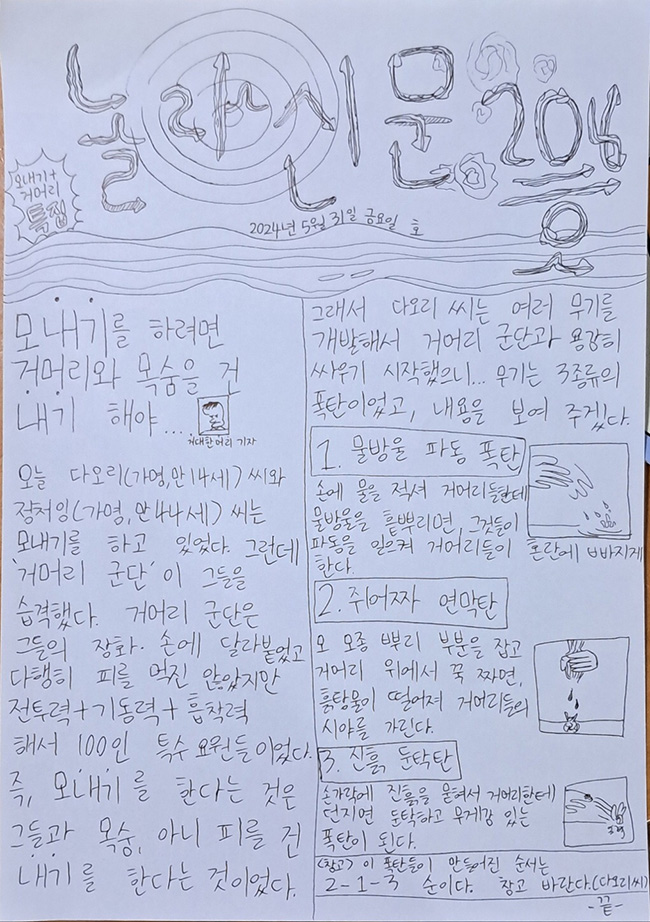 놀라신문 208호
모내기+
거머리
특집
2024년 5월 31일 금요일 호
모내기를 하려면
거머리와 목숨을 건
내기 해야...
거대한머리 기자
오늘 다오리(가명, 만14세) 씨와
정처잉(가명, 만44세) 씨는
모내기를 하고 있었다. 그런데
'거머리 군단'이 그들을
습격했다. 거머리 군단은
그들의 장화·손에 달라붙었고
다행히 피를 먹진 않았지만
전투력+기동력+흡착력
해서 100인 특수 요원들이었다.
즉, 모내기를 한다는 것은
그들과 목숨, 아니 피를 건
내기를 한다는 것이었다.
그래서 다오리 씨는 여러 무기를
개발해서 거머리 군단과 용감히
싸우기 시작했으니... 무기는 3종류의
폭탄이었고, 내용을 보여 주겠다.
1. 물방울 파동 폭탄
손에 물을 적셔 거머리들한테
물방울을 흩뿌리면, 그것들이
파동을 일으켜 거머리들이 혼란에 빠지게
한다.
2. 쥐어짜 연막탄
오 모종 뿌리 부분을 잡고
거머리 위에서 꾹 짜면,
흙탕물이 떨어져 거머리들의
시야를 가린다.
3. 진흙, 둔탁탄
손가락에 진흙을 묻혀서 거머리한테
던지면 둔탁하고 무게감 있는
폭탄이 된다.
<참고> 이 폭탄들이 만들어진 순서는
2-1-3 순이다. 참고 바란다.(다오리씨)
-끝-